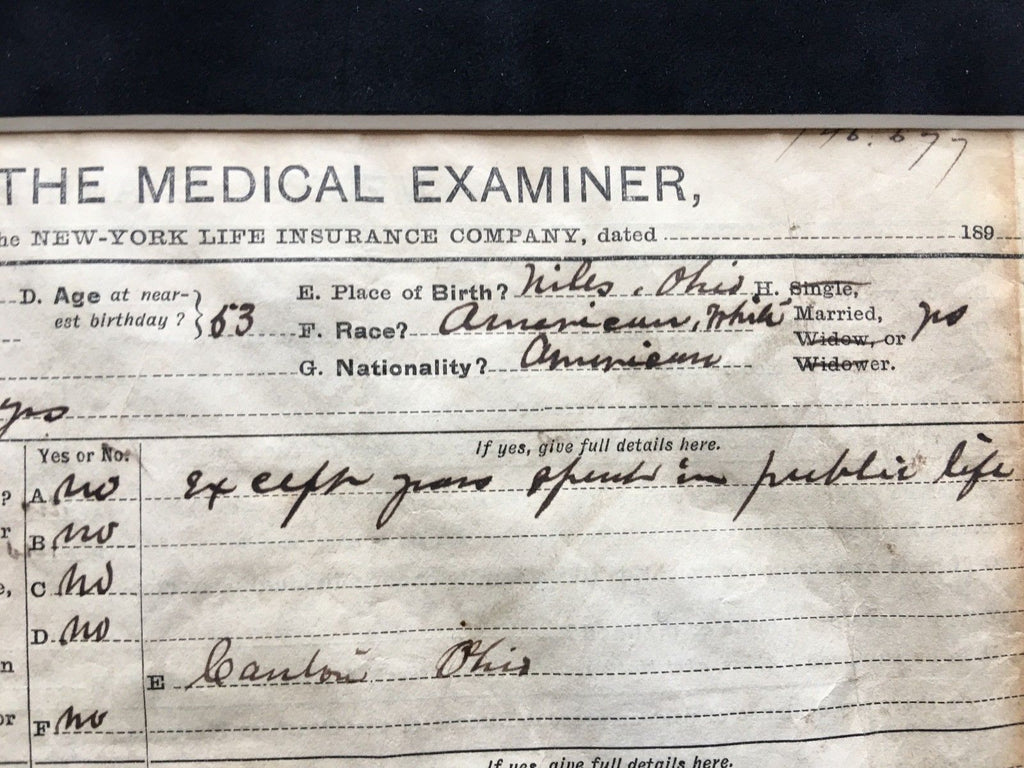 THE MEDICAL EXAMINER,
he NEW-YORK LIFE INSURANCE COMPANY, dated 189
D. Age at near-
est birthday? 53
E. Place of Birth? Niles, Ohio
F. Race? American, White
G. Nationality? American
H. Single,
Married, yes
Widow, or
Widower.
yes
Yes or No.
If yes, give full details here.
? A no Except years spent in public life
r B no
e, C no
D no
n E Canton Ohio
or F no
If yes, give full details here.